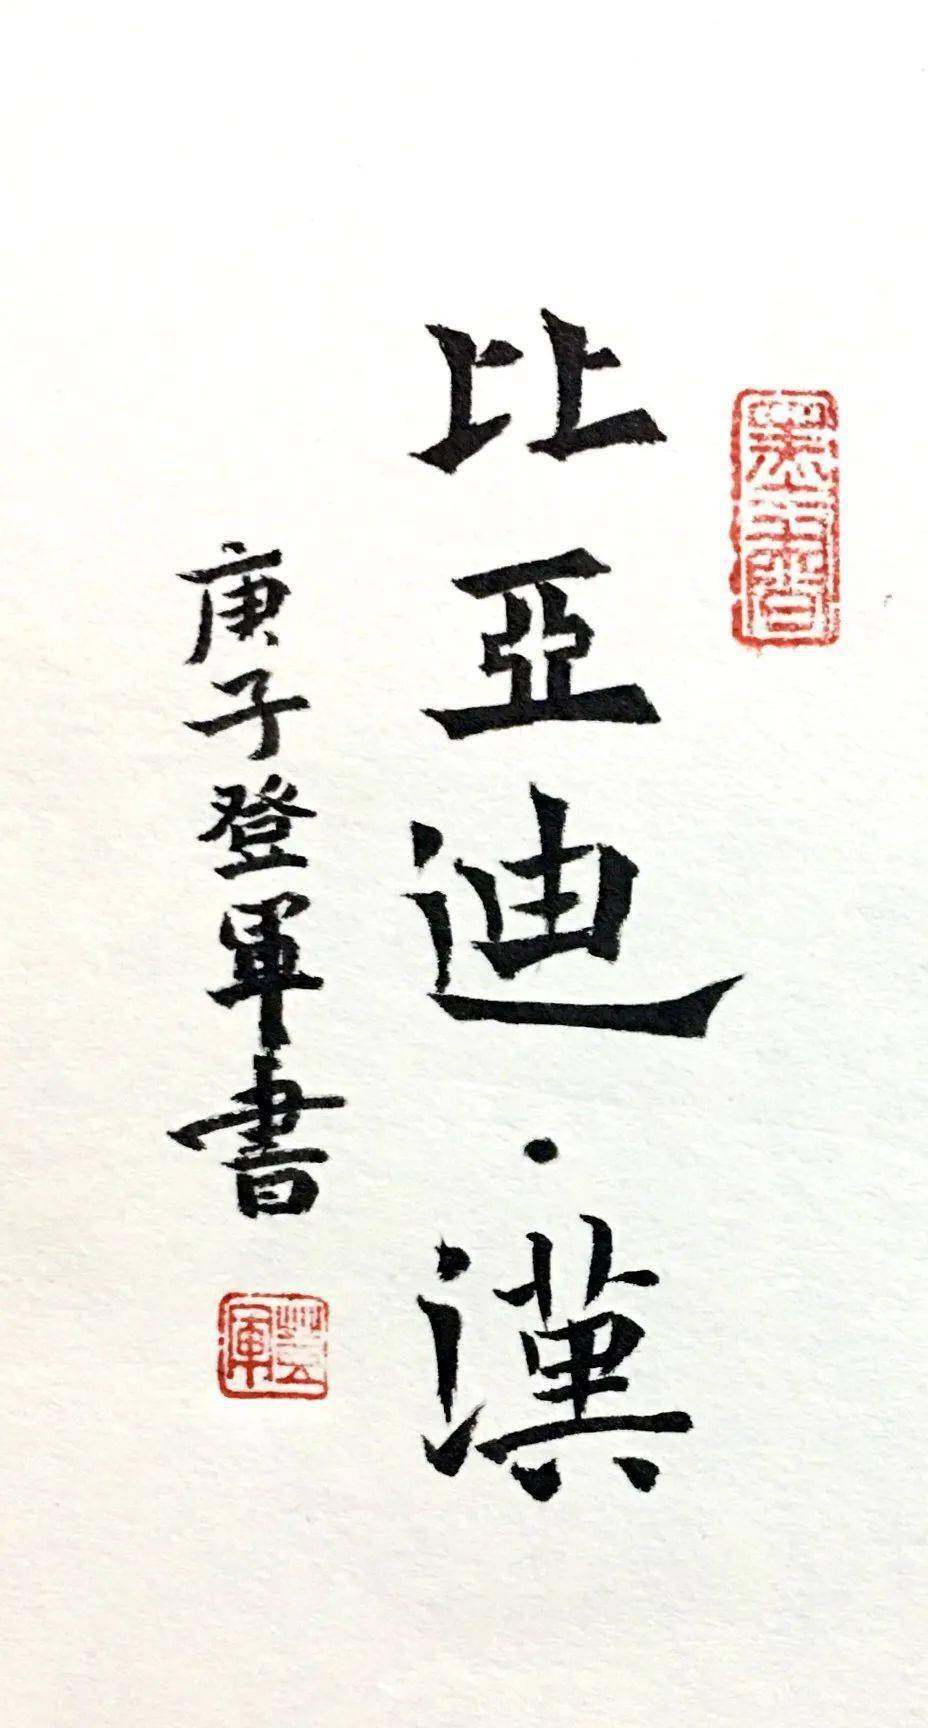 比亞迪·漢
庚子登軍書